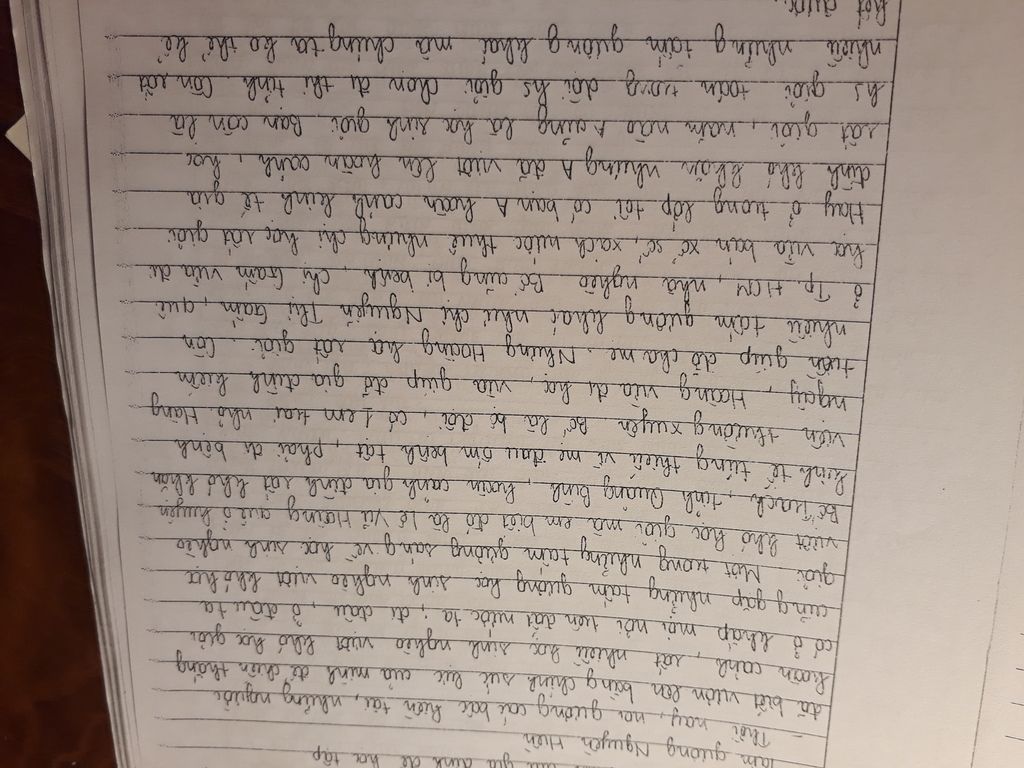 của gia đình để học tập
Tấm gương Nguyễn Hiền
- Thời nay, noi gương các bậc hiền tài, những người
đã biết vươn lên bằng chính sức lực của mình để chiến thắng
hoàn cảnh, rất nhiều học sinh nghèo vượt khó học giỏi
có ở khắp mọi nơi trên đất nước ta; đi đâu, ở đâu ta
cũng gặp những tấm gương học sinh nghèo vượt khó học
giỏi. Một trong những tấm gương sáng về học sinh nghèo
vượt khó học giỏi mà em biết đó là Lê Vũ Hoàng quê ở huyện
Bố Trạch, tỉnh Quảng Bình, hoàn cảnh gia đình rất khó khăn
kinh tế túng thiếu vì mẹ đau ốm bệnh tật, phải đi bệnh
viện thường xuyên. Bố là bộ đội, có 1 em trai nhỏ. Hàng
ngày, Hoàng vừa đi học, vừa giúp đỡ gia đình kiếm
tiền giúp đỡ cha mẹ. Nhưng Hoàng học rất giỏi. Còn
nhiều tấm gương khác như chị Nguyễn Thị Gấm, quê
ở Tp. HCM, nhà nghèo, Bố cũng bị bệnh, chị Gấm vừa đi
học vừa bán xổ số, xách nước thuê nhưng chị học rất giỏi
Hay ở trong lớp tôi có bạn A hoàn cảnh kinh tế gia
đình khó khăn nhưng A đã vượt lên hoàn cảnh, học
rất giỏi, năm nào A cũng là học sinh giỏi. Bạn còn là
hs giỏi toán trong đội hs giỏi chọn đi thi tỉnh. Còn rất
nhiều những tấm gương khác mà chúng ta ko thể kể
hết được.